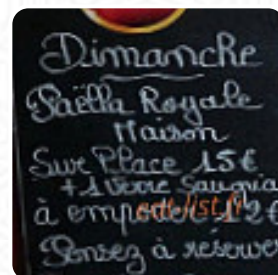 Dimanche
Paëlla Royale
Maison
Sur Place 15€
+ 1 Verre Sangria
à emporter 12€
Pensez à réserver